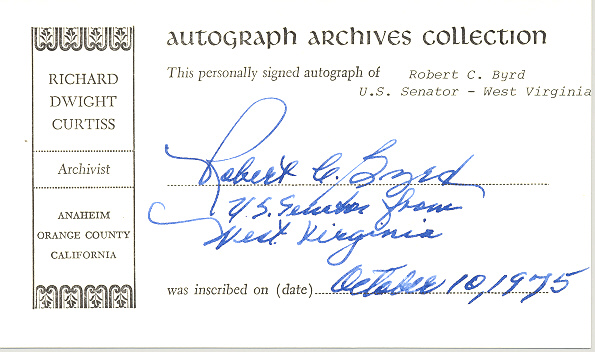 AUTOGRAPH ARCHIVES COLLECTION
RICHARD
DWIGHT
CURTISS
Archivist
ANAHEIM
ORANGE COUNTY
CALIFORNIA
This personally signed autograph of Robert C. Byrd
U.S. Senator - West Virginia
Robert C. Byrd
U.S. Senator from
West Virginia
was inscribed on (date) October 10, 1975